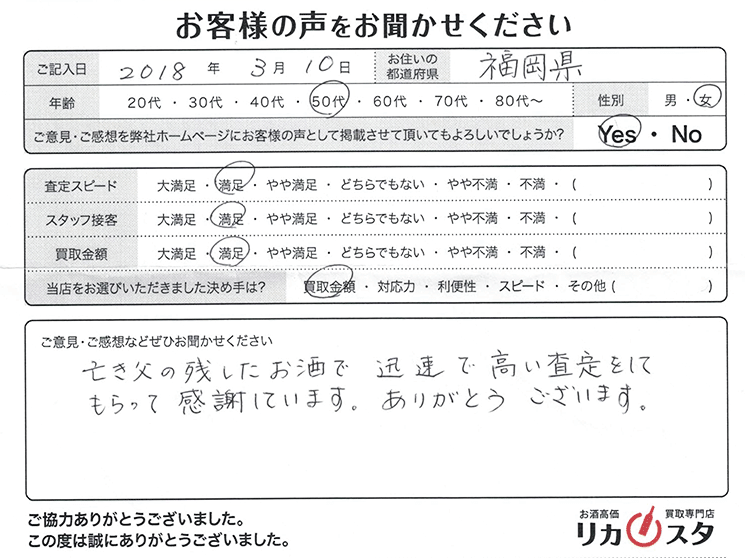 お客様の声をお聞かせください
ご記入日 2018 年 3月 10日 お住いの都道府県 福岡県
年齢 20代 ・ 30代 ・ 40代 ・ 50代 ・ 60代 ・ 70代 ・ 80代〜 性別 男 ・ 女
ご意見・ご感想を弊社ホームページにお客様の声として掲載させて頂いてもよろしいでしょうか? Yes ・ No
査定スピード 大満足 ・ 満足 ・ やや満足 ・ どちらでもない ・ やや不満 ・ 不満 ・ ( )
スタッフ接客 大満足 ・ 満足 ・ やや満足 ・ どちらでもない ・ やや不満 ・ 不満 ・ ( )
買取金額 大満足 ・ 満足 ・ やや満足 ・ どちらでもない ・ やや不満 ・ 不満 ・ ( )
当店をお選びいただきました決め手は? 買取金額 ・ 対応力 ・ 利便性 ・ スピード ・ その他 ( )
ご意見・ご感想などぜひお聞かせください
亡き父の残したお酒で 迅速で高い査定をして
もらって感謝しています。ありがとうございます。
ご協力ありがとうございました。
この度は誠にありがとうございました。
お酒高価 買取専門店
リカスタ